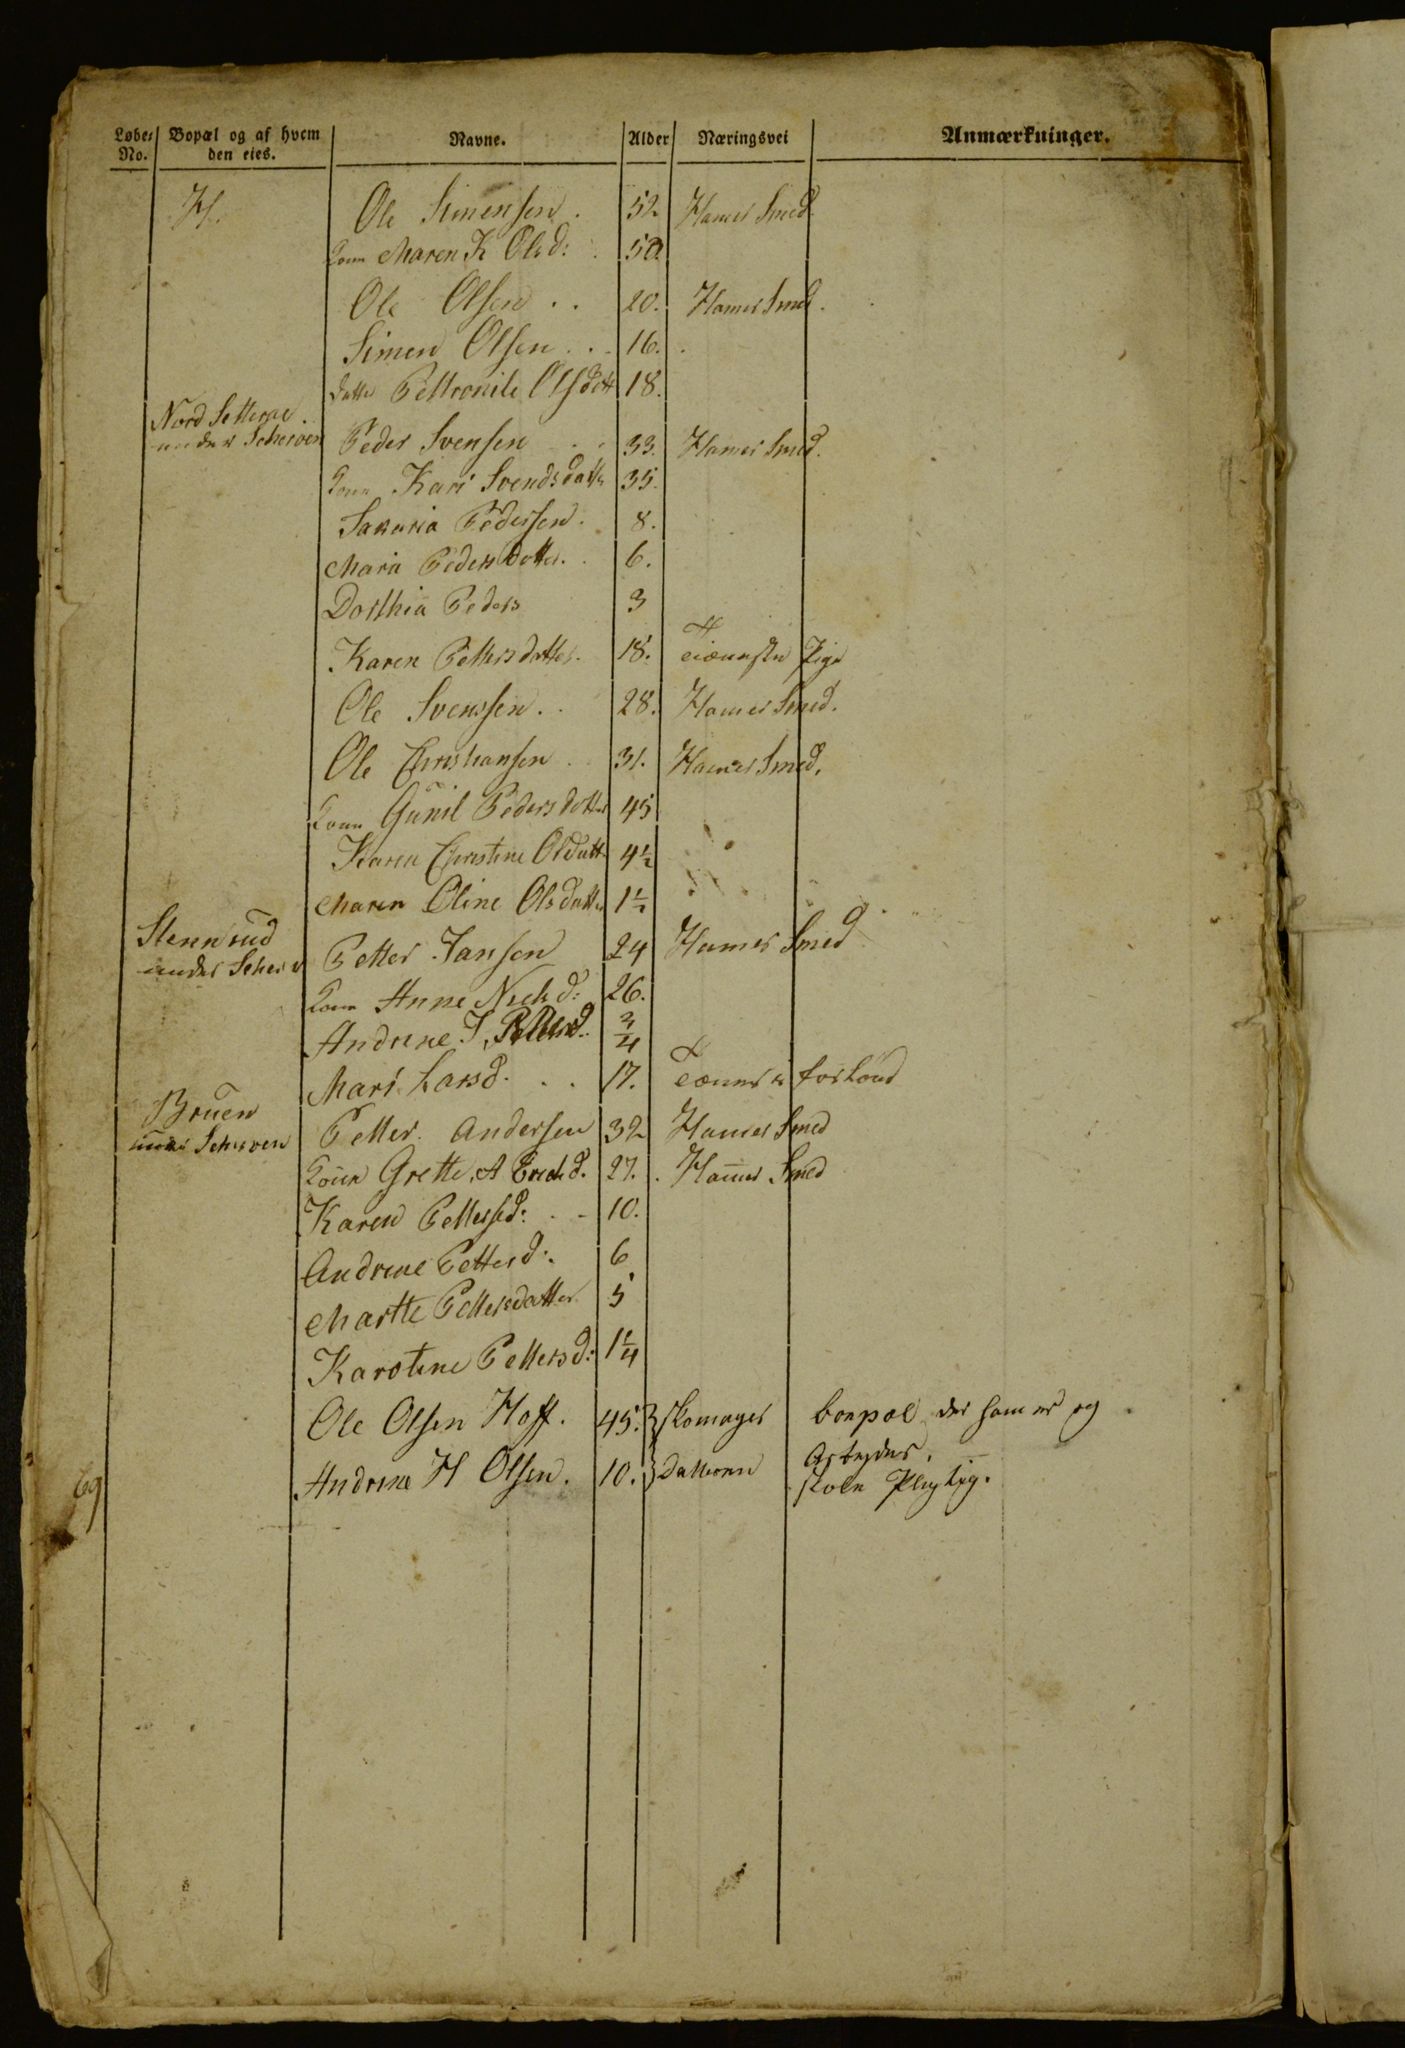 Løbe- No. Bopæl og af hvem den eies. Navne. Alder Næringsvei Anmærkninger.
H. Ole Simensen . 52 Hamer Smed
Kone Maren K Olsd: . 50.
Ole Olsen . . 20. Hamer Smed.
Simen Olsen . . . 16. .
datter Pettronile Olsdatt 18.
Nord Setterne
under Scherven Peder Svensen . . 33. Hamer Smed.
Kone Kari Svendsdatter 35.
Sakaria Pedersen. 8.
Maria Peders Datter. . 6.
Dorthia Peders 3
Karen Pettersdatter. 18. Tieneste Pige
Ole Svenssen. . 28. Hamer Smed.
Ole Christiansen . 31. Hamer Smed.
Kone Gunil Pedersdotter 45
Karen Christine Olsdatt 4½
Maren Oline Olsdatter 1½
Stennrud
under Scherv Petter Jansen 24 Hamer Smed
Kone Anne Nielsd: 26.
Andrine J. Pettersd. ¾
Mari Larsd. . . 17. Tæner
Bruen
under Scherven Petter Andersen 32 Hamer Smed
Kone Grette A d. 27. . Hamer Smed
Karen Pettersd: . - 10.
Andrine Pettersd:. 6
Marthe Pettersdatter 5
Karoline Pettersd: 1¼
Ole Olsen Hoff. 45. skomager der han er og
Arbyder.
Andrine H Olsen. 10. Datteren skole Plegtig.
69